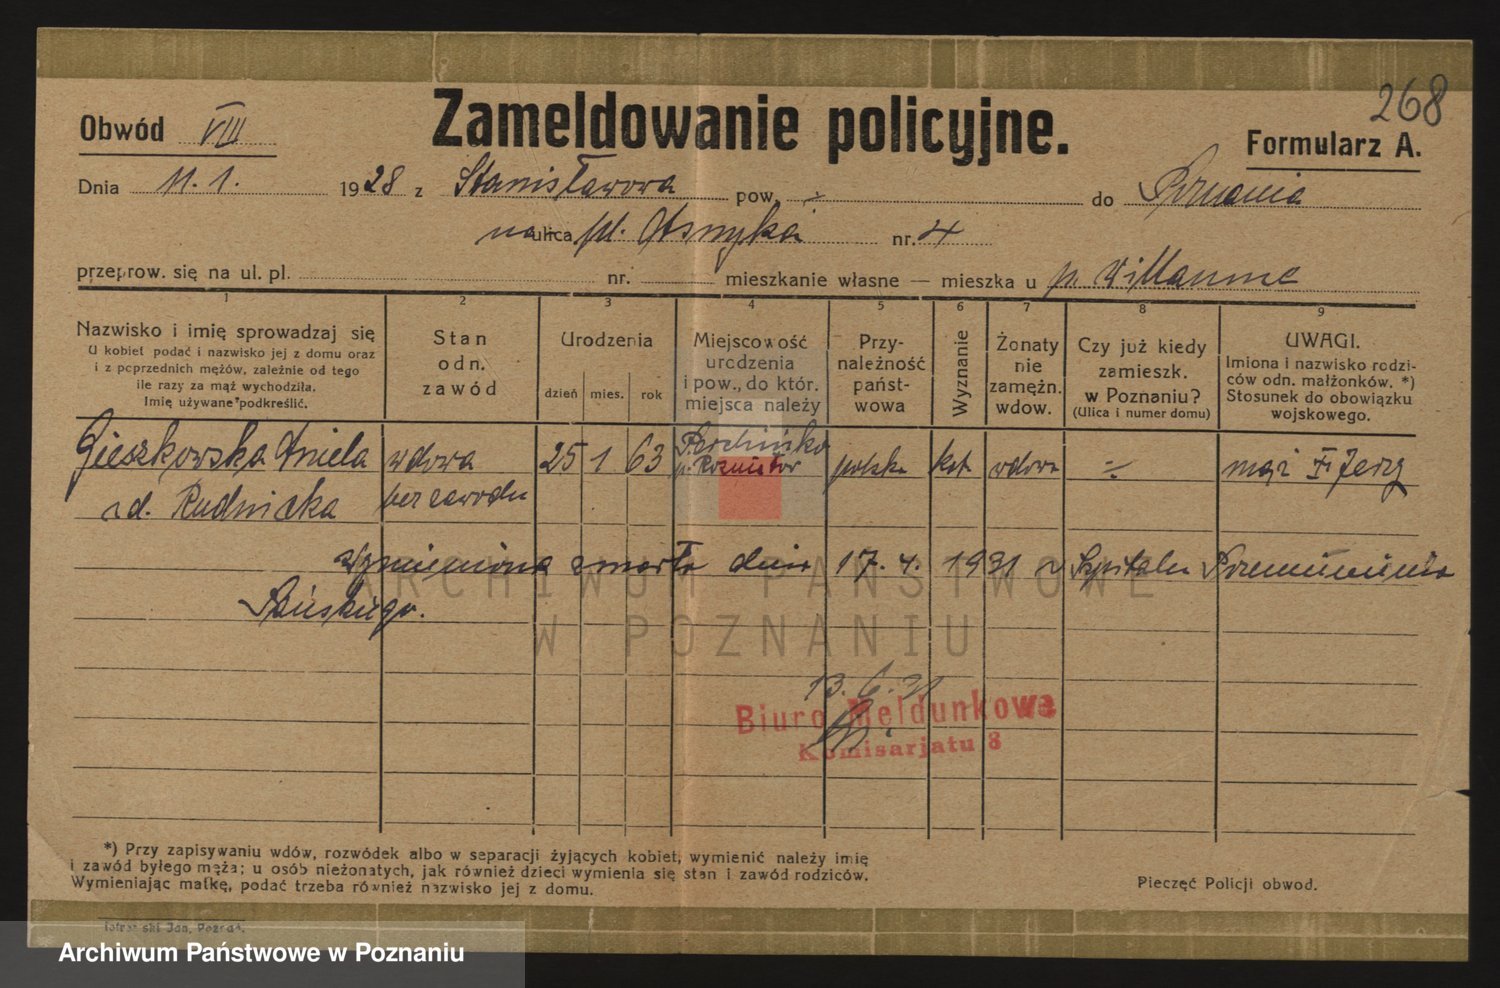 268
Zameldowanie policyjne.
Obwód VIII
Formularz A.
Dnia 11. 1. 1928 z Stanisławowa pow. do Poznania
na ulica pl. Asnyka nr. 4
przeprow. się na ul. pl. nr. mieszkanie własne — mieszka u p.
1 2 3 4 5 6 7 8 9
Nazwisko i imię sprowadzaj się
U kobiet podać i nazwisko jej z domu oraz
i z poprzednich mężów, zależnie od tego
ile razy za mąż wychodziła.
Imię używane podkreślić.
Stan
odn.
zawód
Urodzenia
dzień mies. rok
Miejscowość
urodzenia
i pow., do któr.
miejsca należy
Przy-
należność
państ-
wowa
Wyznanie
Żonaty
nie
zamężn.
wdow.
Czy już kiedy
zamieszk.
w Poznaniu?
(Ulica i numer domu)
UWAGI.
Imiona i nazwisko rodzi-
ców odn. małżonków. *)
Stosunek do obowiązku
wojskowego.
Cieszkowska Aniela wdowa 25 1 63 polska kat. wdowa mąż Jerzy
zd. Rudnicka bez zawodu
Wymieniona zmarła dnia 17. 4. 1931 w Szpitalu Przemienienia
Pańskiego.
ARCHIWUM PAŃSTWOWE
W POZNANIU
13. 6. 31
Biuro Meldunkowe
Komisarjatu 8
*) Przy zapisywaniu wdów, rozwódek albo w separacji żyjących kobiet, wymienić należy imię
i zawód byłego męża; u osób nieżonatych, jak również dzieci wymienia się stan i zawód rodziców.
Wymieniając matkę, podać trzeba również nazwisko jej z domu.
Pieczęć Policji obwod.
Jan, Poznań.
Archiwum Państwowe w Poznaniu